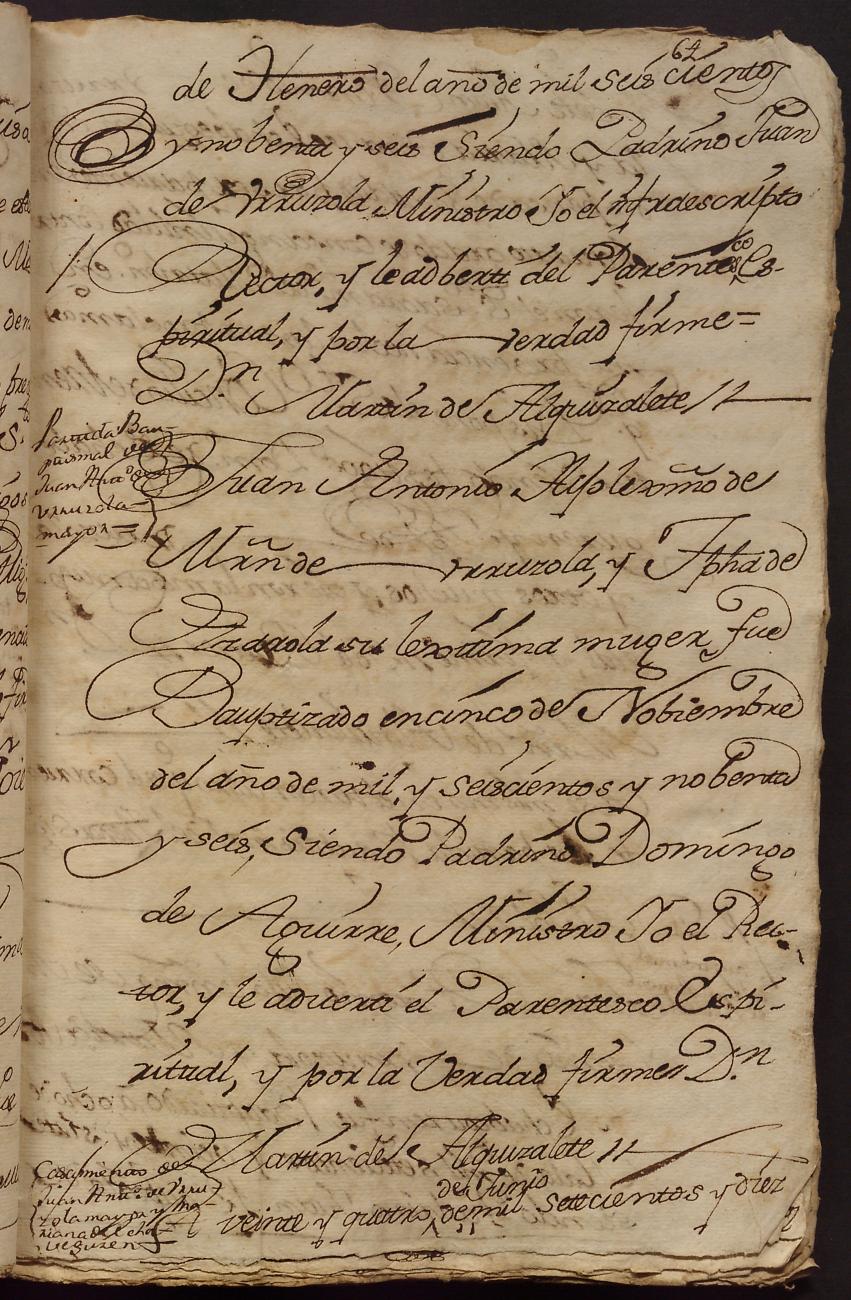 64
de Henero del año de mil seis cientos
y nobenta y seis siendo Padrino Juan
de Vrruzola Ministro Yo el infraescripto
Rector, y le adberti del Parentesco Es-
piritual, y por la verdad firme=
Dn
Martin de Alquizalete //
Partida Bau-
ptismal de
Juan Anto de
Vrruzola
mayor=
Juan Antonio Hijo lexmo de
Mrn de Vrruzola, y Jpha de
su lexitima muger, fue
Bauptizado en cinco de Nobiembre
del año de mil, y seiscientos y nobenta
y seis, siendo Padrino Domingo
de Aguirre, Ministro Yo el Rec-
tor, y le adverti el Parentesco Espi-
ritual, y por la Verdad firmer Dn
Martin de Alquizalete //
Casamiento de
Juan Anto de Vrru
zola mayor y Ma
riana de
veguren=
A veinte y quatro de Junio de mil setecientos y diez